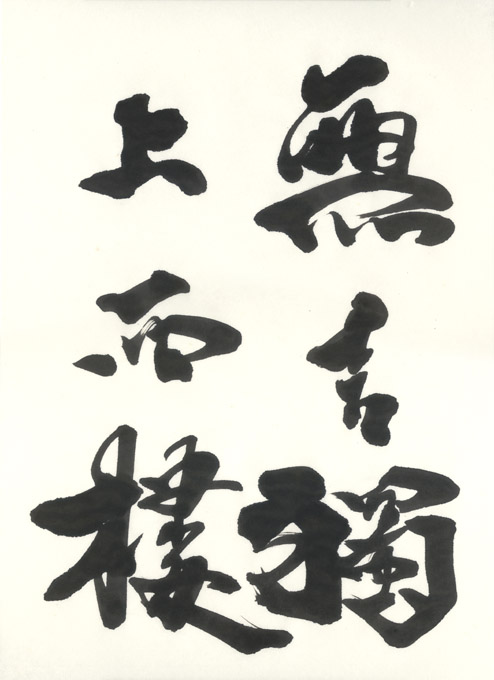 無言獨
上西樓